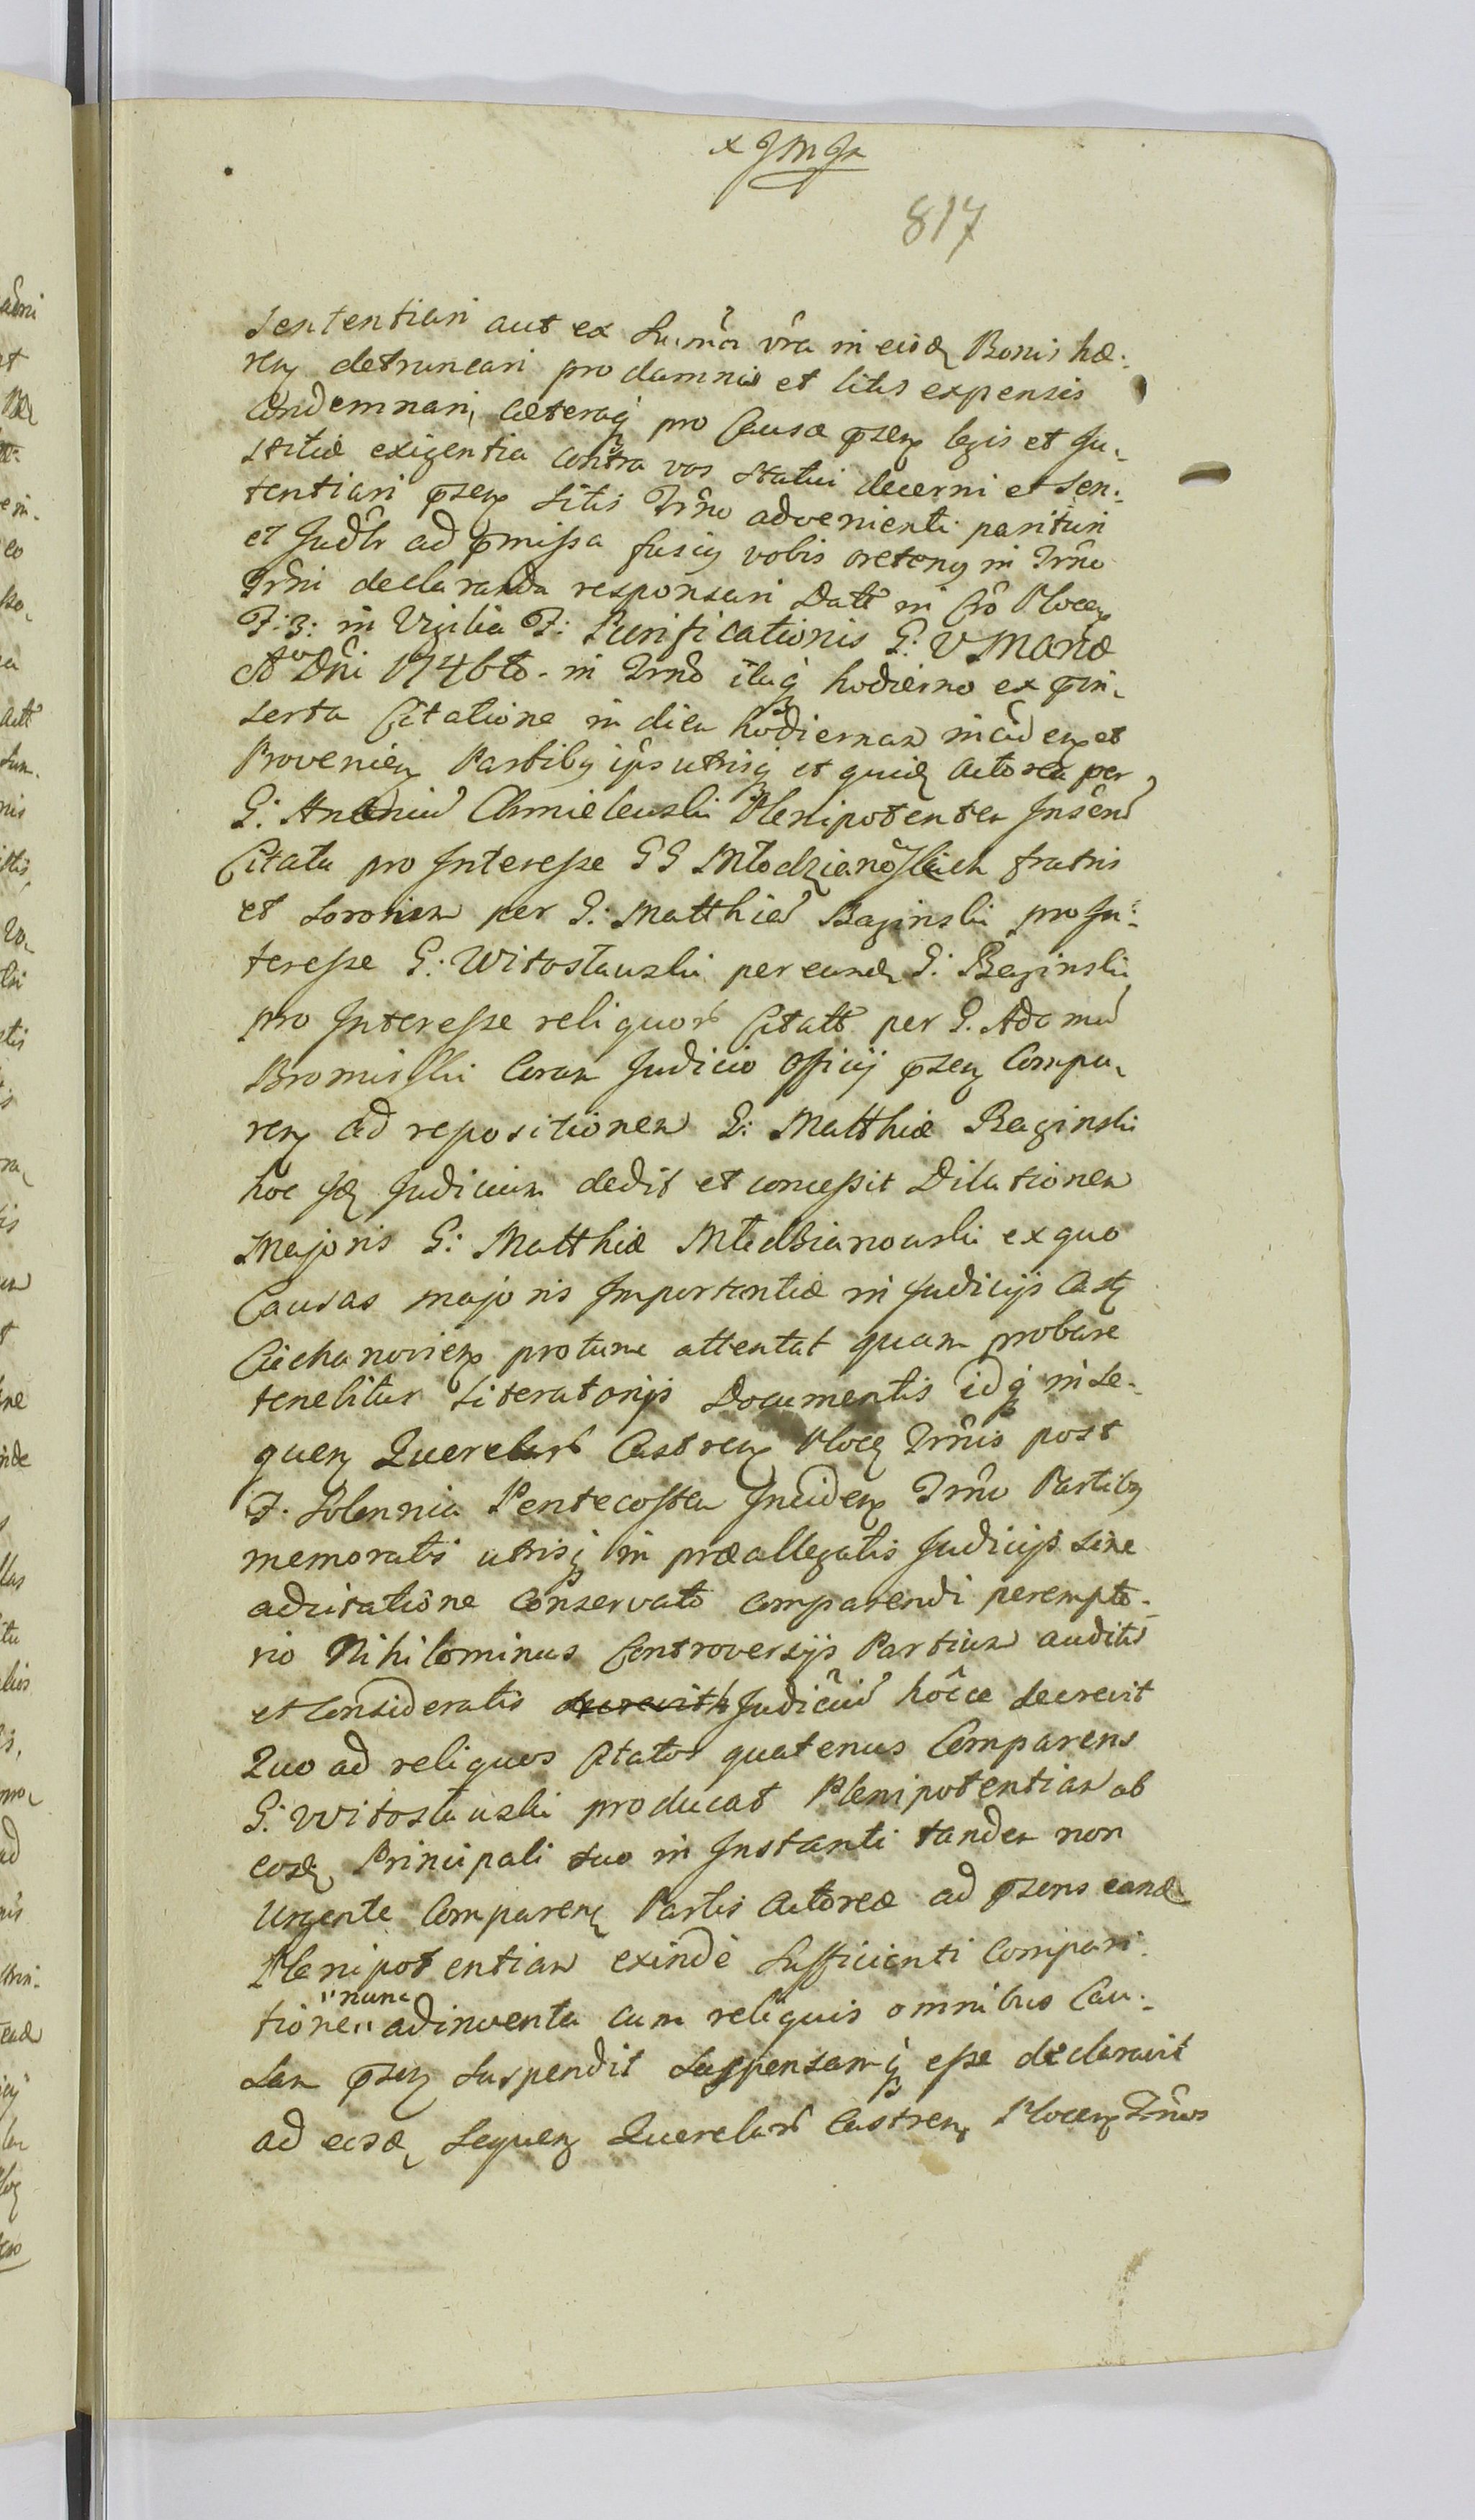 x JMJr
817
sententiari aut ex Suma vra in eisdę Bonis hæ:
reń detruncari pro damnis et litis expensis
Condemnari, cæteraq pro Causæ pseń legis et Ju-
stitiæ exigentia contra vos statui decerni et sen-
tentiari pseń sitis Trno advenienti parituri
et Judlr ad pmissa fusiy vobis oreteny in Trno
Trni declaranda responsuri Datt in Cro Plocen
F: 3: in Vigilia F: Purificationis G: V Mariæ
Ao Dni 1746to. in Trno itaq hodierno ex pin-
serta Citatione in diem hodiernam inciden et
Provenien Partiby ips utrisq et quidę Actorea per
G: Antoniu Chmielewski Plenipotentem Insend
Citata pro Interesse GG Młodzianoskich fratris
et sororum per G: Matthia Baginski pro In-
teresse G: Witosławski per eundę G: Baginski
pro Interesse reliquor Citatt per G. Adamu
Bromirski Coram Judicio Officij pseń Compa-
ren ad repositionem G: Matthiæ Baginski
hoc Judicium dedit et concessit Dilationem
Majoris G: Matthiæ Młodzianowski ex quo
Causas majoris Importentiæ in Judicijs Cast
Ciechanovien protunc attentat quam probare
tenebitur Literatorijs Documentis idq in se-
quen Querelar Castren Ploc Trnis post
F. Solennia Pentecosten Inciden Trno Partiby
memoratis utrisq in præallegatis Judicijs sine
adcitatione conservato comparendi perempto-
rio Nihilominus Controversijs Partium auditis
et Consideratis decrevith Judiciu hocce decrevit
Quo ad reliquos Citatos quatenus Comparens
G: Witosławski producat Plenipotentiam ab
eodę Principali suo in Instanti tandem non
Urgente Comparen Partis Actoreæ ad psens eandę
Plenipotentiam exinde sufficienti compari-
tione "nunc" adinventa cum reliquis omnibus Cau-
sam pseń suspendit suspensamq esse declaravit
ad eosdę sequen Querelar Castren Plocen Trnos